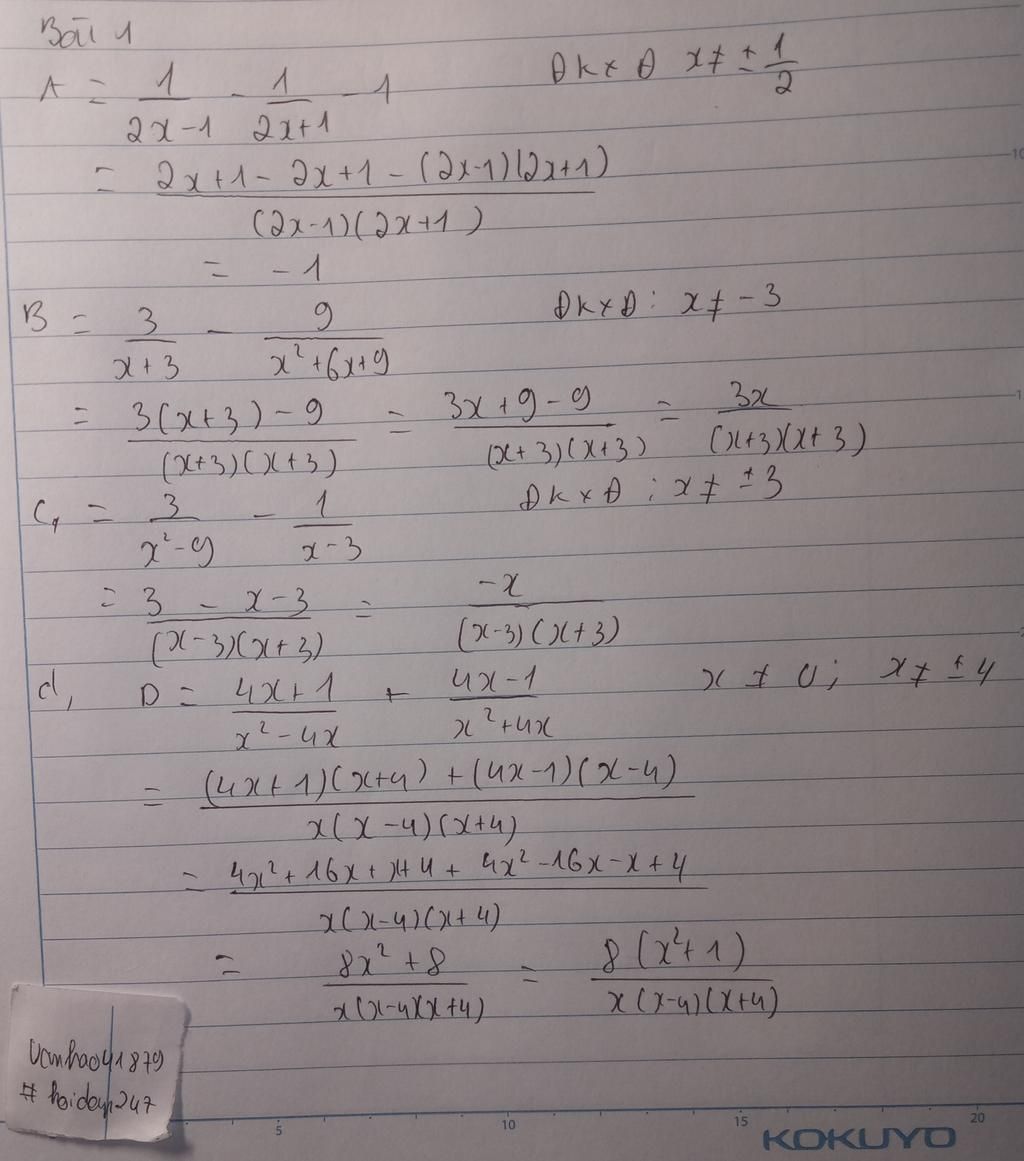 Bài 1
A = 1/(2x-1) - 1/(2x+1) - 1 ĐKXĐ x ≠ ± 1/2
= (2x+1 - 2x+1 - (2x-1)(2x+1))/((2x-1)(2x+1))
= -1
B = 3/(x+3) - 9/(x²+6x+9) ĐKXĐ: x ≠ -3
= (3(x+3) - 9)/((x+3)(x+3)) = (3x+9-9)/((x+3)(x+3)) = 3x/((x+3)(x+3))
C, = 3/(x²-9) - 1/(x-3) ĐKXĐ : x ≠ ±3
= (3 - x-3)/((x-3)(x+3)) = -x/((x-3)(x+3))
d, D = (4x+1)/(x²-4x) + (4x-1)/(x²+4x) x ≠ 0; x ≠ ±4
= ((4x+1)(x+4) + (4x-1)(x-4))/(x(x-4)(x+4))
= (4x²+16x+x+4 + 4x²-16x-x+4)/(x(x-4)(x+4))
= (8x²+8)/(x(x-4)(x+4)) = 8(x²+1)/(x(x-4)(x+4))
Vanhao41879
# hoidap247
5 10 15 20
KOKUYO